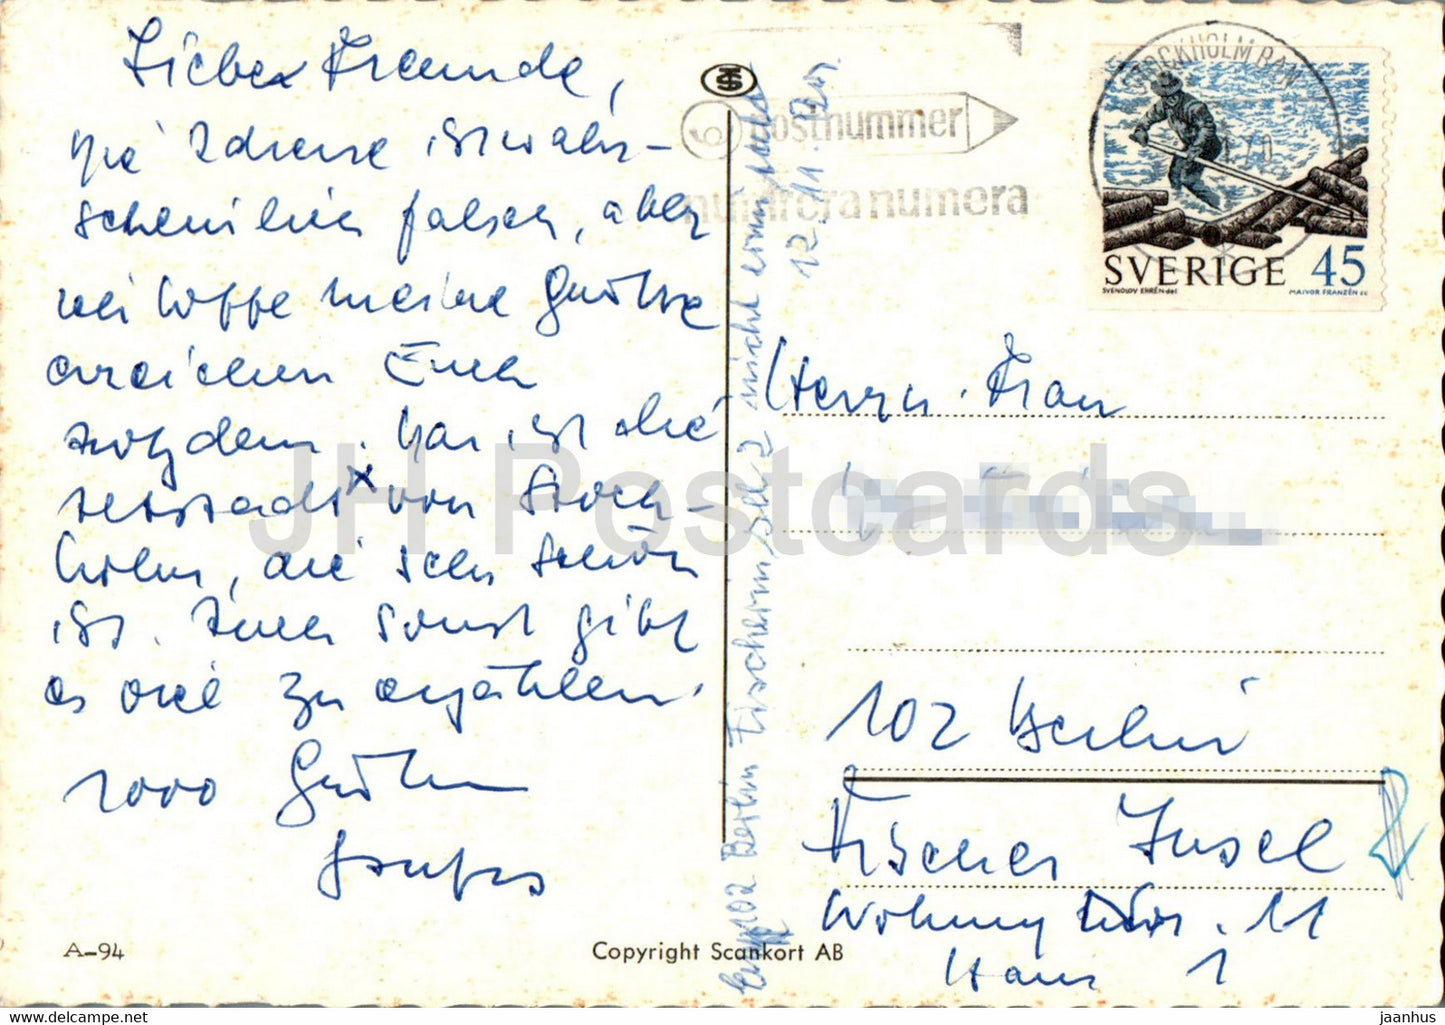 Liebe Freunde,
die Adresse ist wahr-
scheinlich falsch, aber
ich hoffe meine Grüsse
erreichen Euch
trotzdem. Das ist die
Altstadt x von Stock-
holm, die sehr schön
ist. Auch sonst gibt
es viel zu erzählen.
1000 Grüße
A-94
Copyright Scankort AB
102 Berlin Fischerins. 2 nicht ermittelt
12.11.
6 postnummer
numrera numera
STOCKHOLM BAN
70
SVERIGE 45
SVENOLOV EHRÉN del
MAJVOR FRANZÉN sc
Herrn. Frau
102 Berlin
Fischer Insel
Wohnung Nr. 11
Haus 1
JH Postcards
jaanhus